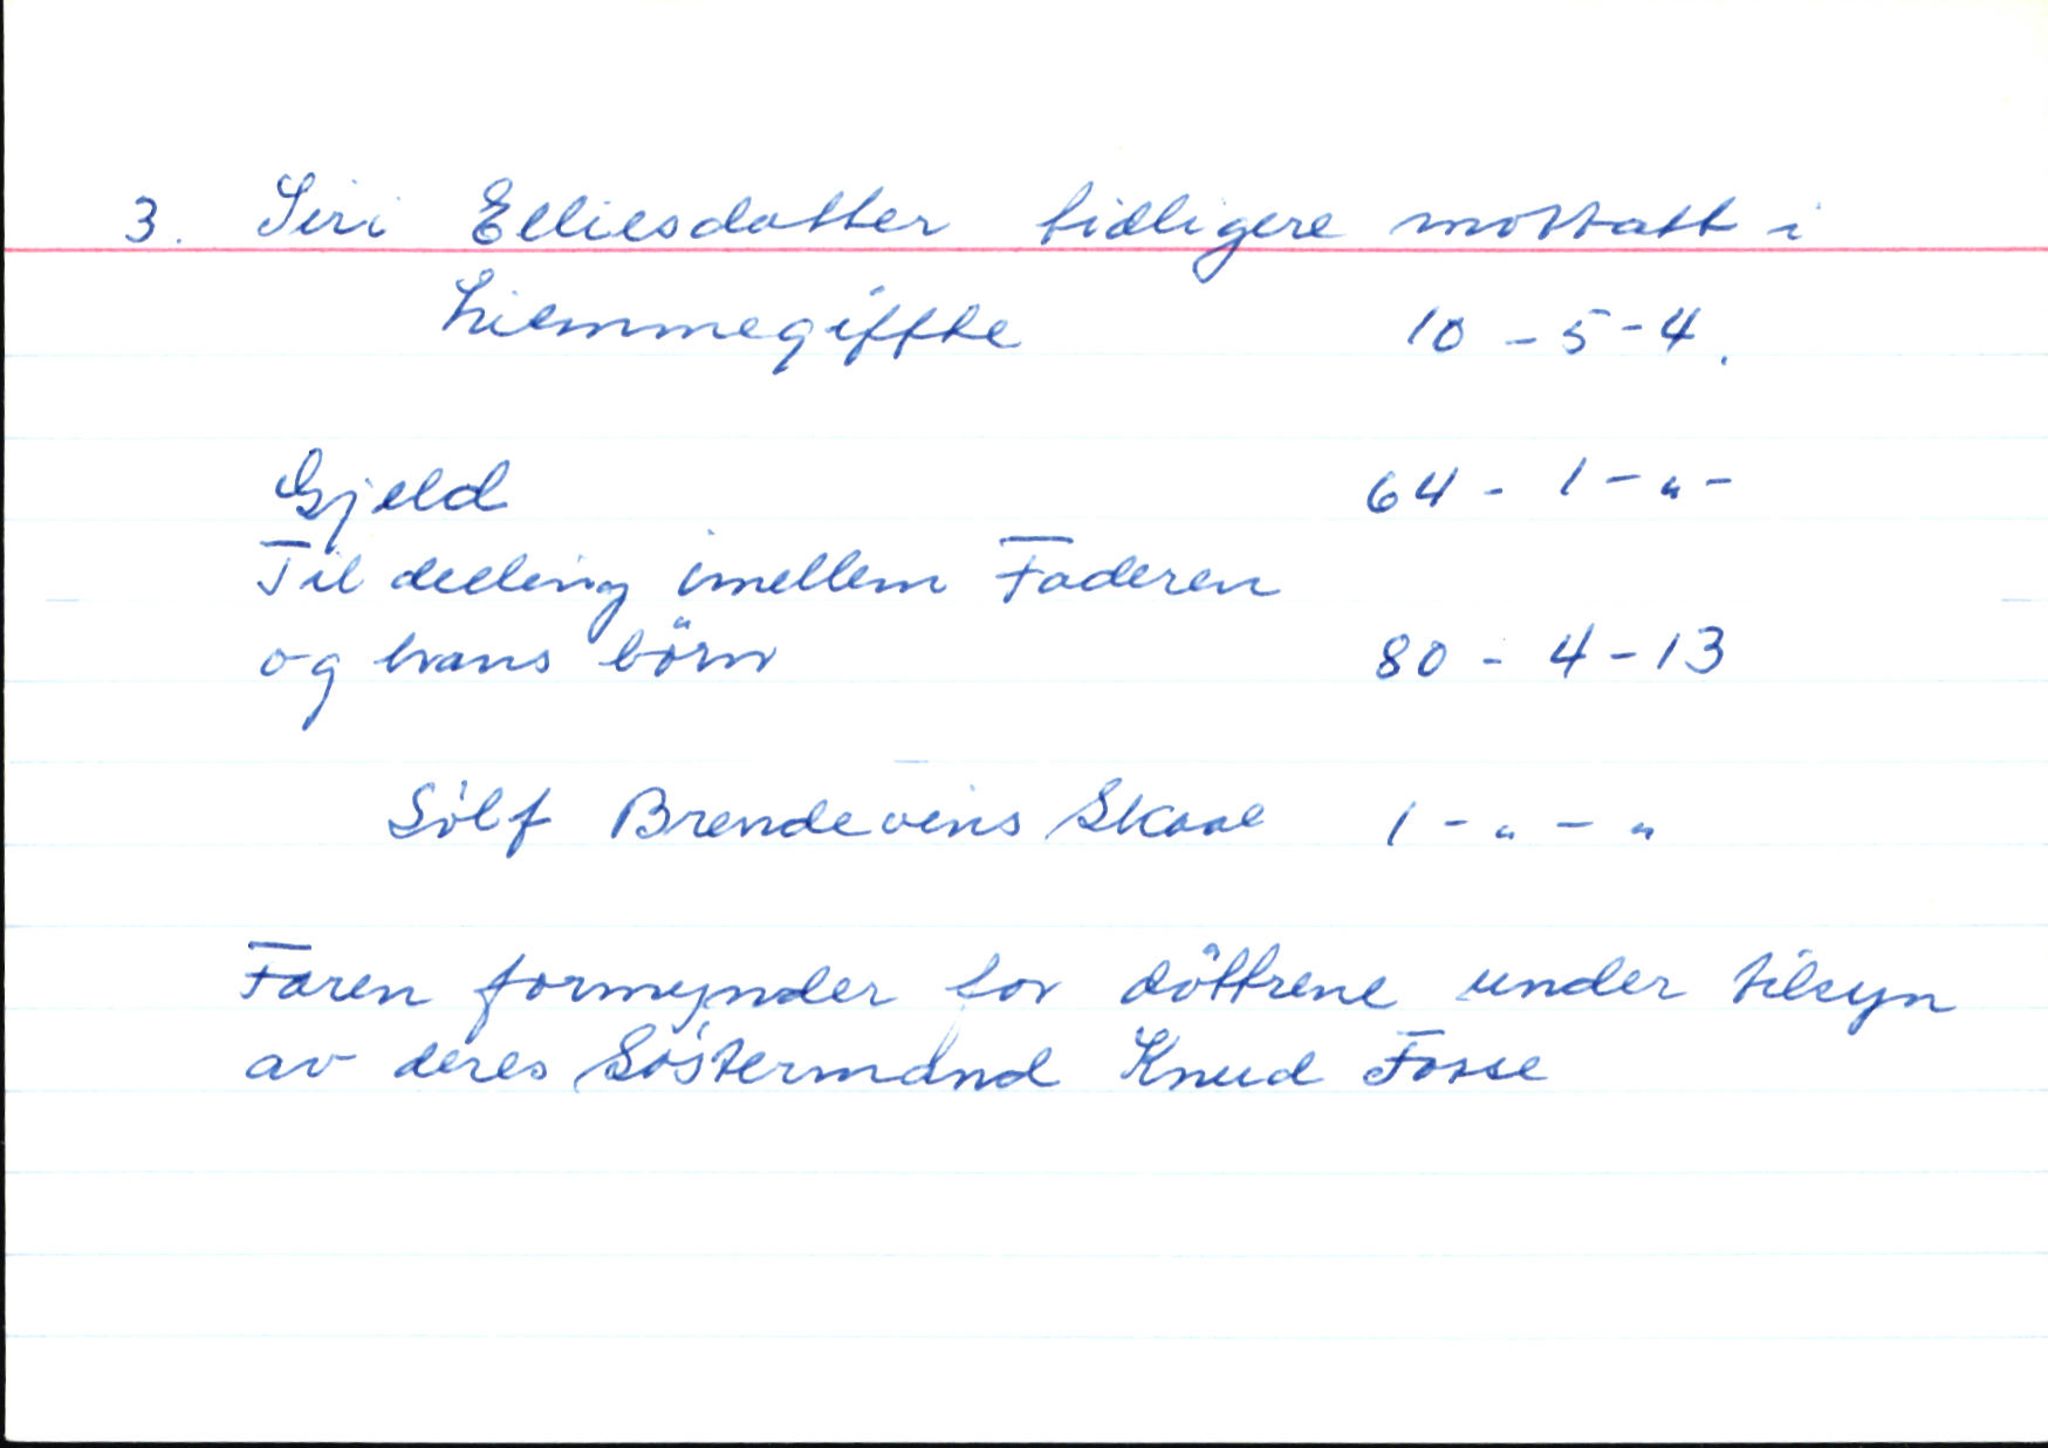 3. Siri Ellilsdatter tidligere mottatt i
hiemmegiffte 10 - 5 - 4.
Gjeld 64 - 1 - " -
Til deeling imellem Faderen
og hans börn 80 - 4 - 13
Sölf Brendevins Skaal 1 - " - "
Faren formynder for döttrene under tilsyn
av deres Söstermand Knud Fosse